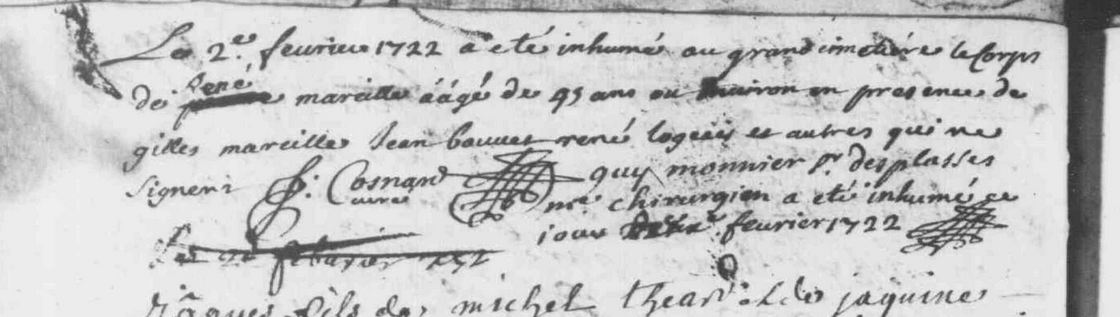 Le 2.e feurier 1722 a eté inhumé au grand cimetiére le Corps
de rené mareille áágé de 45 ans ou enuiron en presence de
gilles mareille Jean bouuet rené et autres qui ne
signent J: Cosnard Curé
guy monnier Sr. desplasses
me. chirurgien a eté inhumé ce
iour feurier 1722
Le 2e feburier 172
Jâques fils de michel et de jaquine